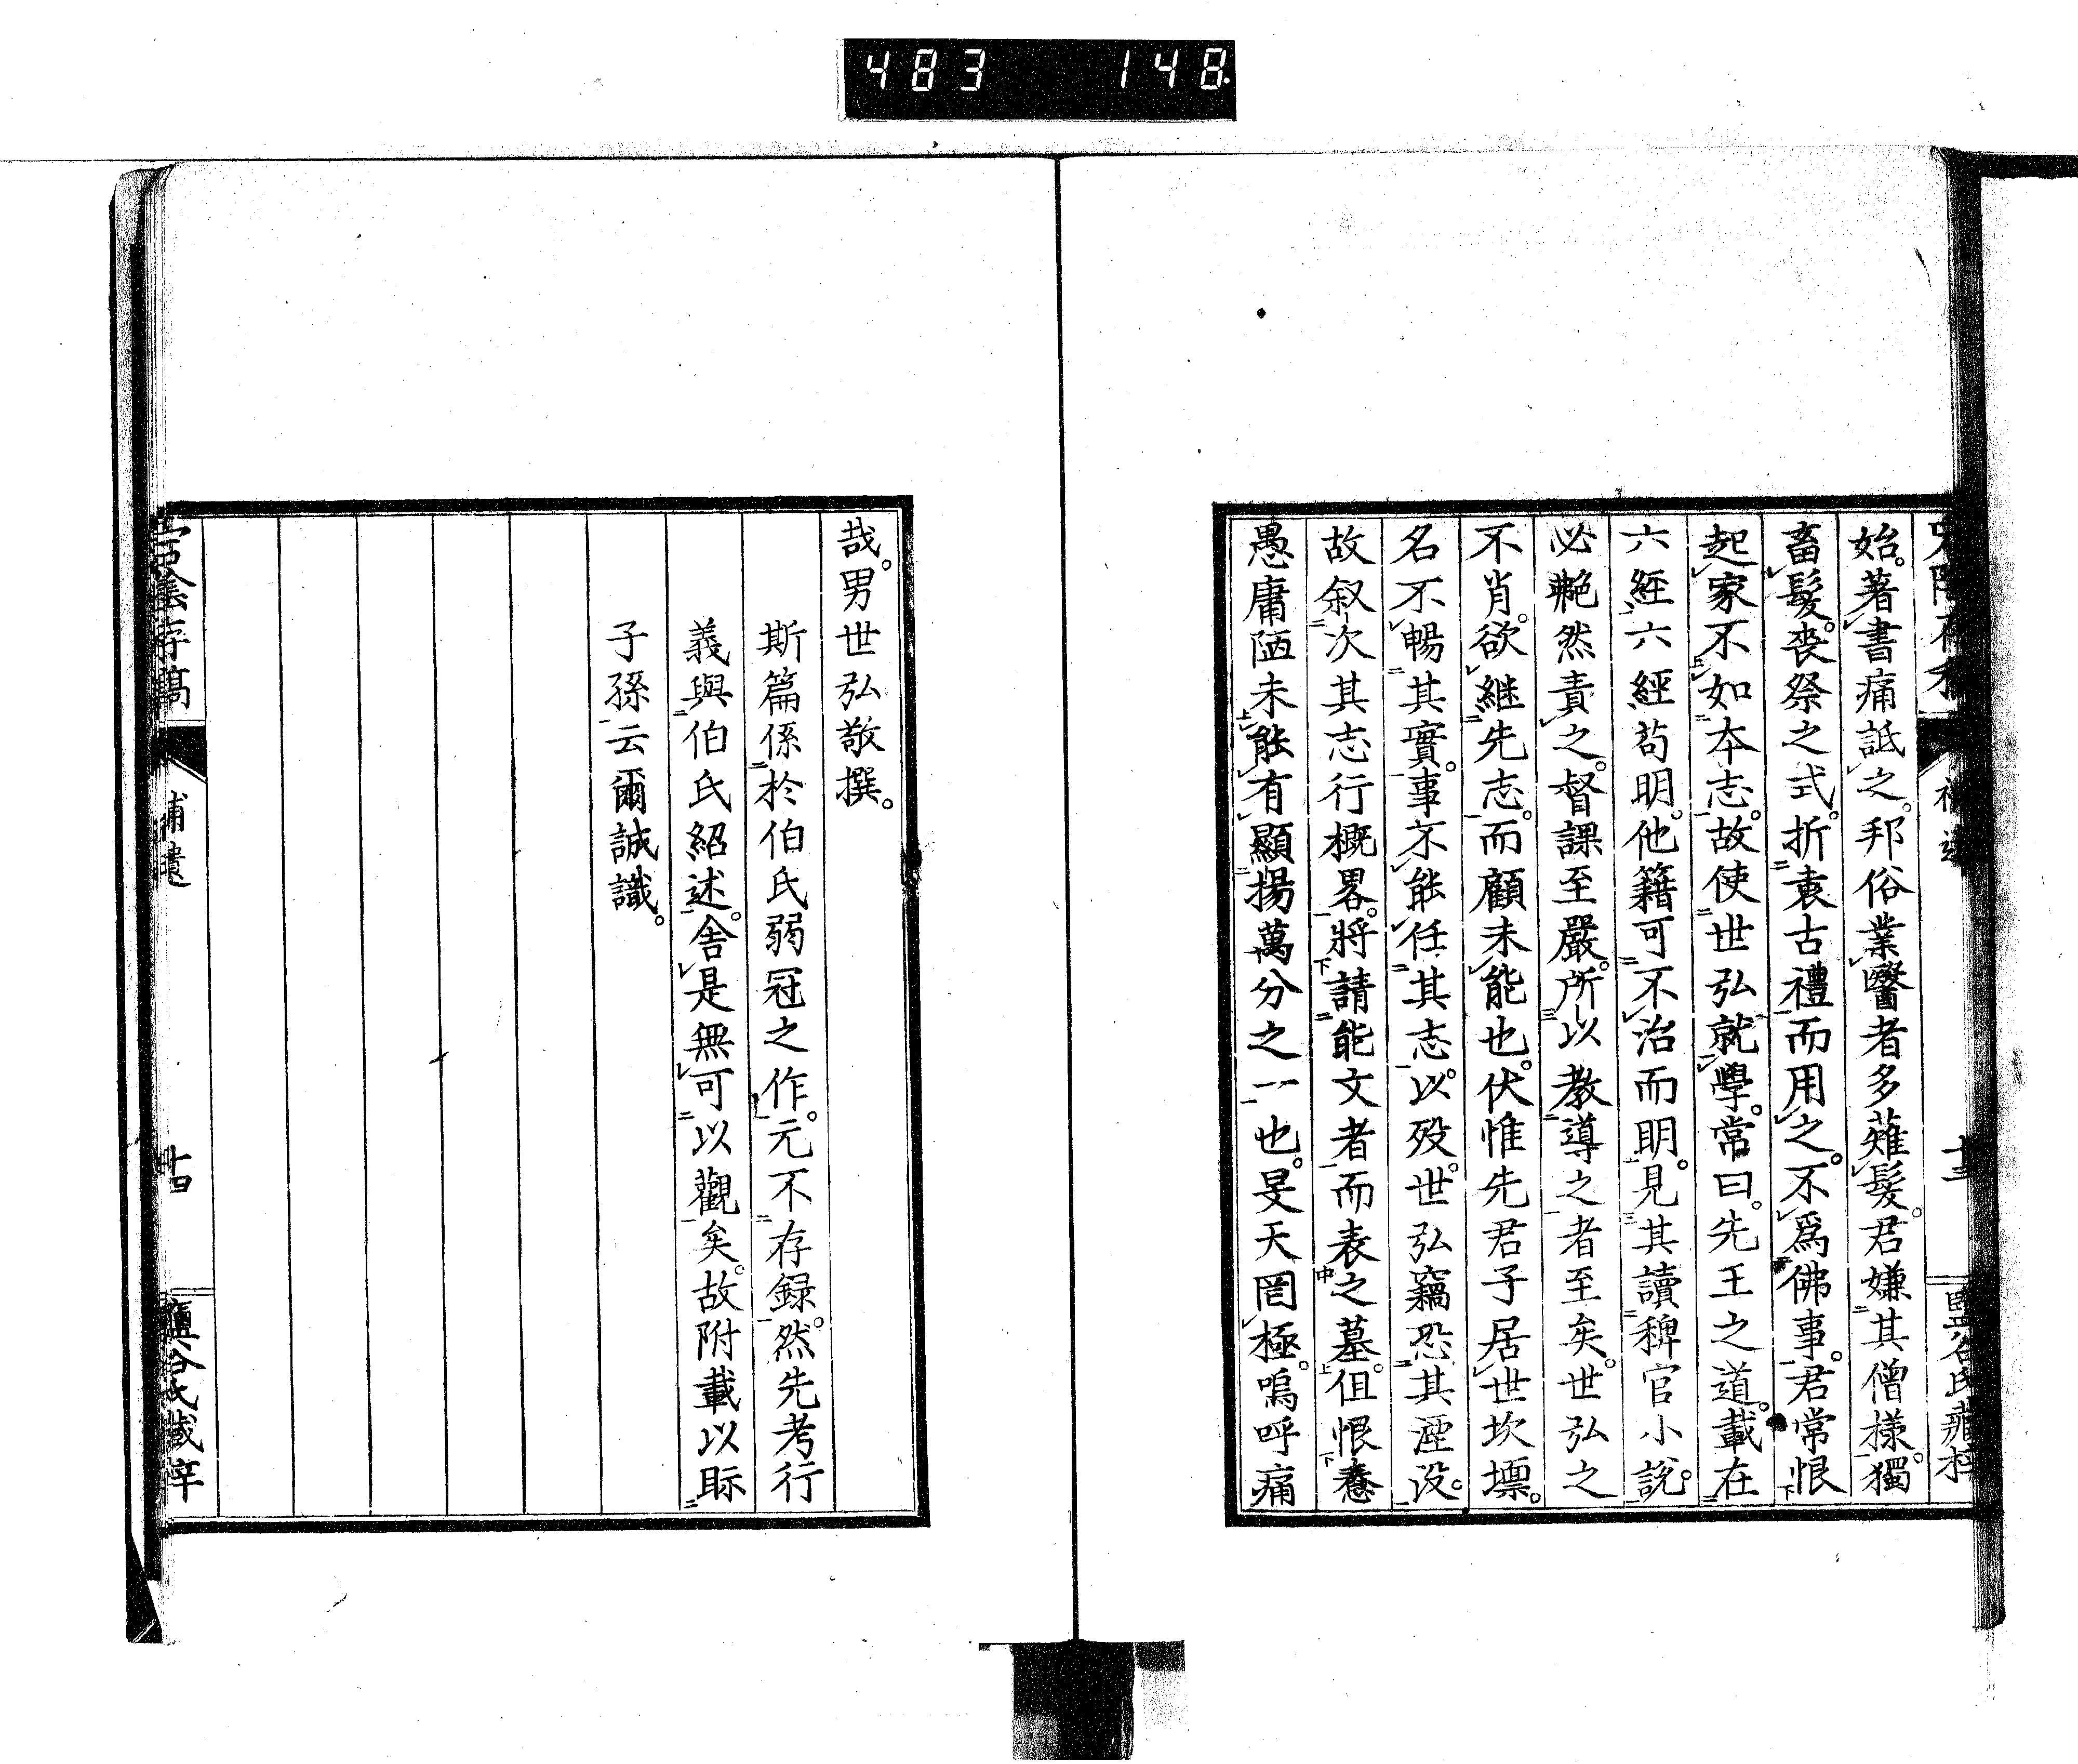 483 148
十三
始。著書痛詆之。邦俗業醫者多薙髮。君嫌其僧様。獨
畜髮。喪祭之式。折衷古禮而用之。不爲佛事。君常恨
起家不如本志。故使世弘就學。常曰。先王之道。載在
六經。六經苟明。他籍可不治而明。見其讀稗官小説。
必艴然責之。督課至嚴。所以教導之者至矣。世弘之
不肖。欲継先志。而顧未能也。伏惟先君子居世坎壈。
名不暢其實。事不能任其志。以歿。世弘竊恐其湮没。
故叙次其志行概畧。將請能文者而表之墓。但恨惷
愚庸陋未能有顯揚萬分之一也。旻天罔極。嗚呼痛
哉。男世弘敬撰。
斯篇係於伯氏弱冠之作。元不存録。然先考行
義與伯氏紹述。舎是無可以觀矣。故附載以眎
子孫云爾誠識。
存稿
補遺
十四
鹽谷氏藏梓